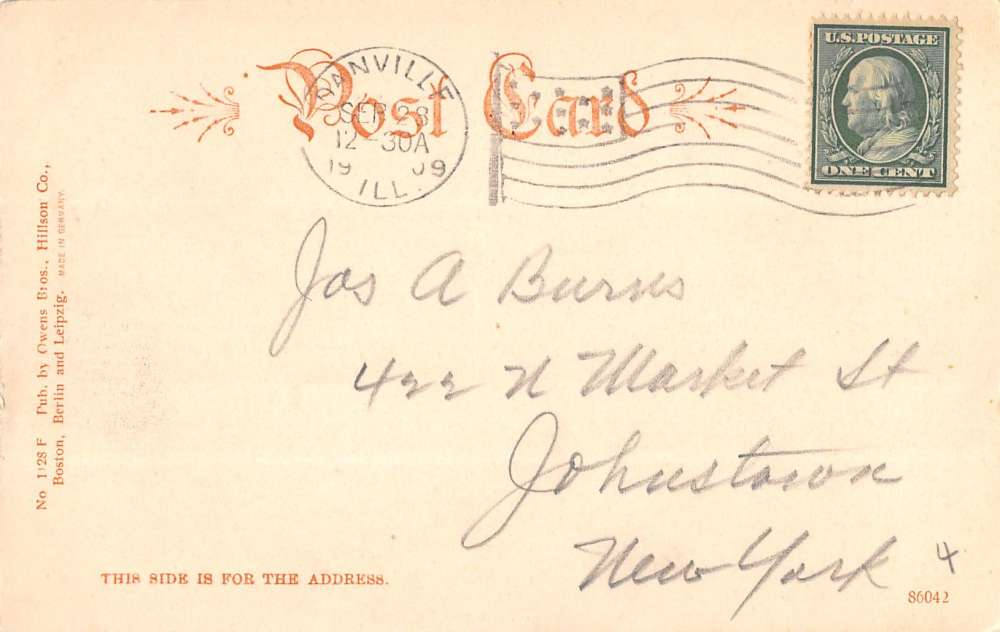 Post Card
DANVILLE
SEP 28
12-30A
1909
ILL.
U.S. POSTAGE
ONE CENT
Jos A Burns
422 N Market St
Johnstown
New York
4
No 1128 F Pub. by Owens Bros., Hillson Co.,
Boston, Berlin and Leipzig. MADE IN GERMANY.
THIS SIDE IS FOR THE ADDRESS.
86042